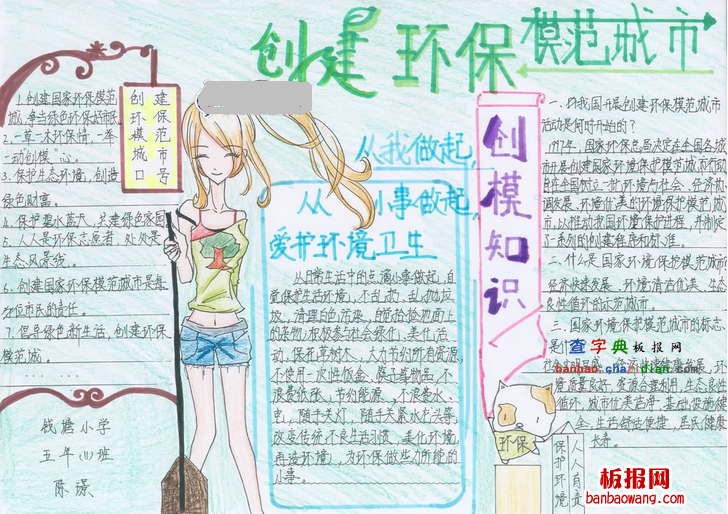 创建环保模范城市
创建
环保
模范
城市
口号
1.创建国家环保模范
城,争当绿色环保好市民
2.一草一木环保情,一举
一动创模“心。
3.保护生态环境,创造
绿色财富。
4.保护碧水蓝天,共建绿色家园
5.人人是环保志愿者,处处是
生态风景线。
6.创建国家环保模范城市是每
位市民的责任。
7.倡导绿色新生活,创建环保
模范城。
钱塘小学
五年(11)班
陈璟
从我做起,
从小事做起,
爱护环境卫生
从日常生活中的点滴小事做起,自
觉保护生活环境,不乱扔、乱抛垃
圾,清理白色污染,自觉捡拾地面上
的杂物,积极参与社会绿化、美化活
动,保花草树木,大力节约所有资源,
不使用一次性饭盒、筷子等物品,不
浪费纸张,节约能源,不浪费水、
电,随手关灯,随手关紧水龙头等,
改变传统不良生活习惯,美化环境,
再造环境,为环保做些力所能的
小事。
创模知识
一.我国开展创建环保模范城市
活动是何时开始的?
1997年,国家环保总局决定在全国各城
市开展创建国家环境保护模范城市活动
旨在全国树立一批环境与社会、经济协
调发展、环境优美的环境保护模范城
市,以推动我国环境保护进程,并制定
了一系列的创建程序和标准。
二.什么是国家环境保护模范城市
经济快速发展、环境清洁优美、生态
良性循环的示范城市。
三.国家环境保护模范城市的标志
是什
社会文明昌盛、经济快速健康发展、环
境质量良好、资源合理利用、生态良性
循环、城市优美洁净、基础设施健
全、生活舒适便捷、居民健康
长寿。
查字典板报网
banbao.chazidian.com
环保
保护环境
人人有责
板报网
banbaowang.com